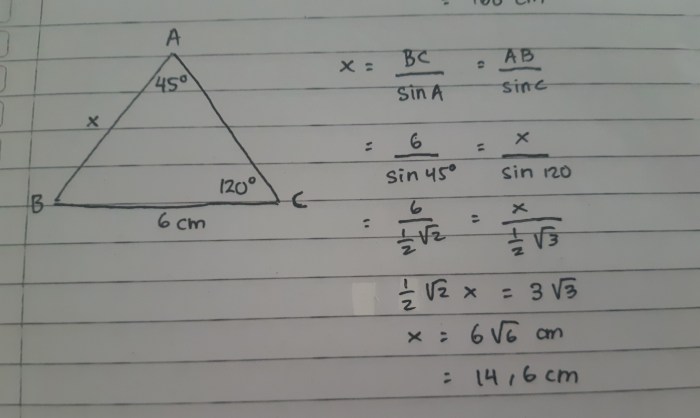 A
45°
x
120°
B
C
6 cm
x = BC/sin A = AB/sin C
= 6/sin 45° = x/sin 120
= 6/(1/2 √2) = x/(1/2 √3)
1/2 √2 x = 3 √3
x = 6√6 cm
= 14,6 cm